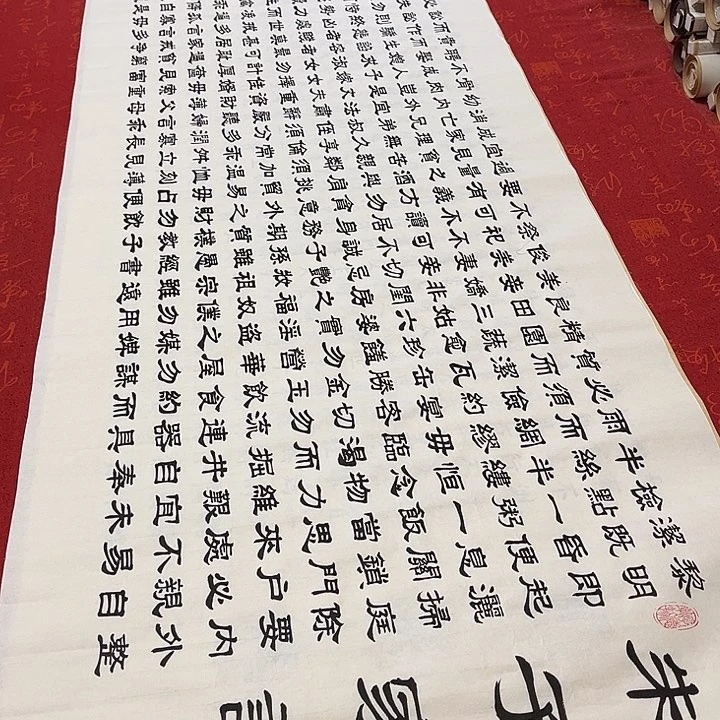 朱子家訓
黎明即起灑掃庭除要內外整
潔既昏便息關鎖門戶必親自
檢點一粥一飯當思來處不易
半絲半縷恆念物力維艱宜未
雨而綢繆毋臨渴而掘井自奉
必須儉約宴客切勿流連器具
質而潔瓦缶勝金玉飲食約而
精園蔬愈珍饈勿營華屋勿謀
良田三姑六婆實淫盜之媒婢
美妾嬌非閨房之福奴僕勿用
俊美妻妾切忌艷妝祖宗雖遠
祭祀不可不誠子孫雖愚經書
不可不讀居身務期質樸教子
要有義方勿貪意外之財勿飲
過量之酒與肩挑貿易毋占便
宜見貧苦親鄰須加溫恤刻薄
成家理無久享倫常乖舛立見
消亡兄弟叔姪須分多潤寡長
幼內外宜法肅辭嚴聽婦言乖
骨肉豈是丈夫重資財薄父母
不成人子嫁女擇佳婿毋索重